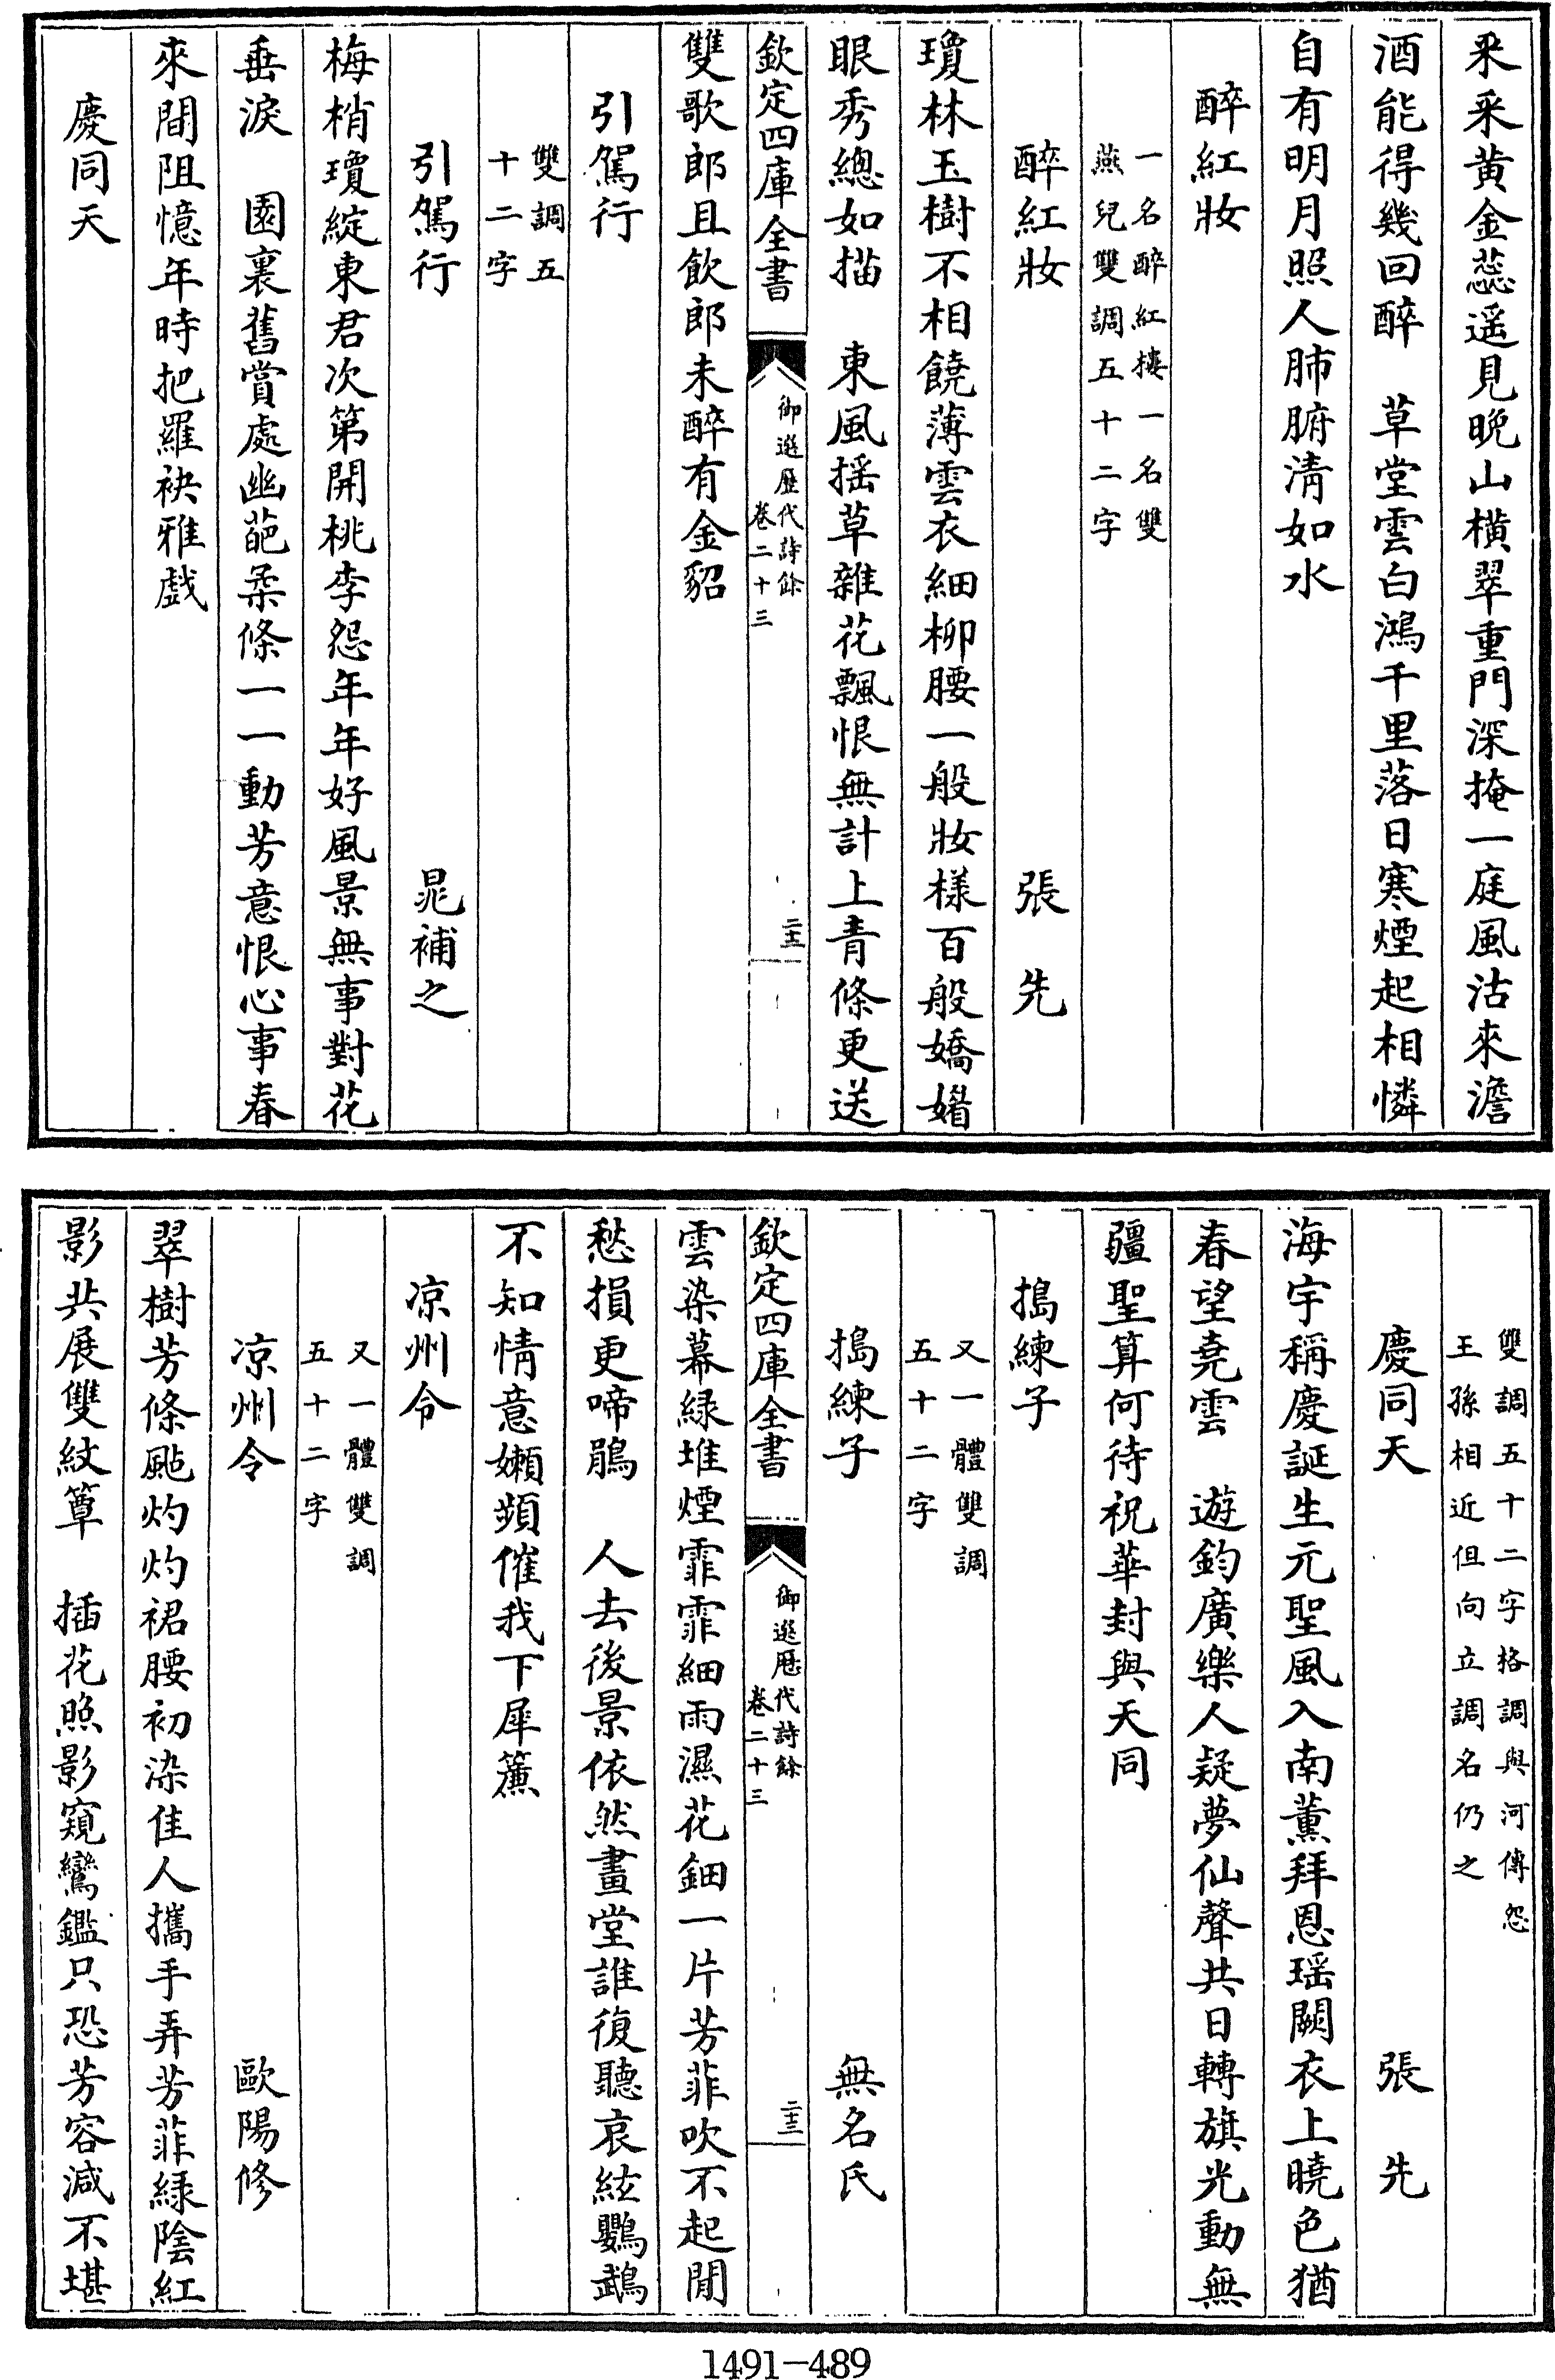 采采黄金蕊遥見晚山橫翠重門深掩一庭風沽來澹
酒能得幾回醉　草堂雲白鴻千里落日寒煙起相憐
自有明月照人肺腑清如水
醉紅妝
一名醉紅樓一名雙
燕兒雙調五十二字
醉紅妝　張先
瓊林玉樹不相饒薄雲衣細柳腰一般妝樣百般嬌媚
眼秀總如描　東風揺草雜花飄恨無計上青條更送
欽定四庫全書
御選歷代詩餘
卷二十三
二十三
雙歌郎且飲郎未醉有金貂
引駕行
雙調五
十二字
引駕行　晁補之
梅梢瓊綻東君次第開桃李怨年年好風景無事對花
垂淚　園裏舊賞處幽葩柔條一一動芳意恨心事春
來間阻憶年時把羅袂雅戲
慶同天
雙調五十二字格調與河傳怨
王孫相近但向立調名仍之
慶同天　張先
海宇稱慶誕生元聖風入南薰拜恩瑶闕衣上曉色猶
春望堯雲　遊鈞廣樂人疑夢仙聲共日轉旗光動無
疆聖算何待祝華封與天同
搗練子
又一體雙調
五十二字
搗練子　無名氏
欽定四庫全書
御選歷代詩餘
卷二十三
二十三
雲染幕緑堆煙霏霏細雨濕花鈿一片芳菲吹不起閒
愁損更啼鵑　人去後景依然畫堂誰復聽哀絃鸚鵡
不知情意嬾頻催我下犀簾
凉州令
又一體雙調
五十二字
凉州令　歐陽修
翠樹芳條颭灼灼裙腰初染佳人攜手弄芳菲緑陰紅
影共展雙紋簟　插花照影窺鸞鑑只恐芳容減不堪
1491-489